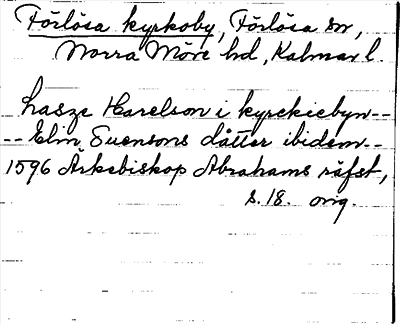 Förlösa kyrkoby, Förlösa sn,
Norra Möre hd, Kalmar l.
Lasze Harelson i kyrckiebyn--
--Elin Suensons dåtter ibidem--
1596 Ärkebiskop Abrahams räfst,
s. 18. orig.